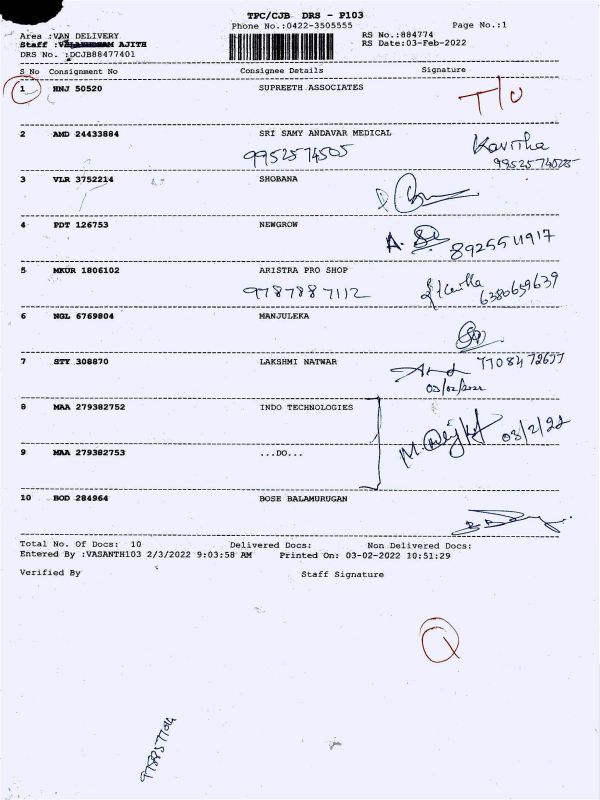 TPC/CJB DRS - P103
Phone No.:0422-3505555
Page No.:1
Area :VAN DELIVERY
RS No.:884774
Staff : AJITH
RS Date:03-Feb-2022
DRS No. :DCJB88477401
S No Consignment No Consignee Details Signature
1 HNJ 50520 SUPREETH ASSOCIATES
T/O
2 AMD 24433884 SRI SAMY ANDAVAR MEDICAL
9952574505
Kavitha
9952574505
3 VLR 3752214 SHOBANA
4 PDT 126753 NEWGROW
A.
8925511917
5 MKUR 1806102 ARISTRA PRO SHOP
9787887112
6380659639
6 NGL 6769804 MANJULEKA
7 STY 308870 LAKSHMI NATWAR
03/02/2022
8 MAA 279382752 INDO TECHNOLOGIES
03/2/22
9 MAA 279382753 ...DO...
10 BOD 284964 BOSE BALAMURUGAN
Total No. Of Docs: 10 Delivered Docs: Non Delivered Docs:
Entered By :VASANTH103 2/3/2022 9:03:58 AM Printed On: 03-02-2022 10:51:29
Verified By Staff Signature
Q